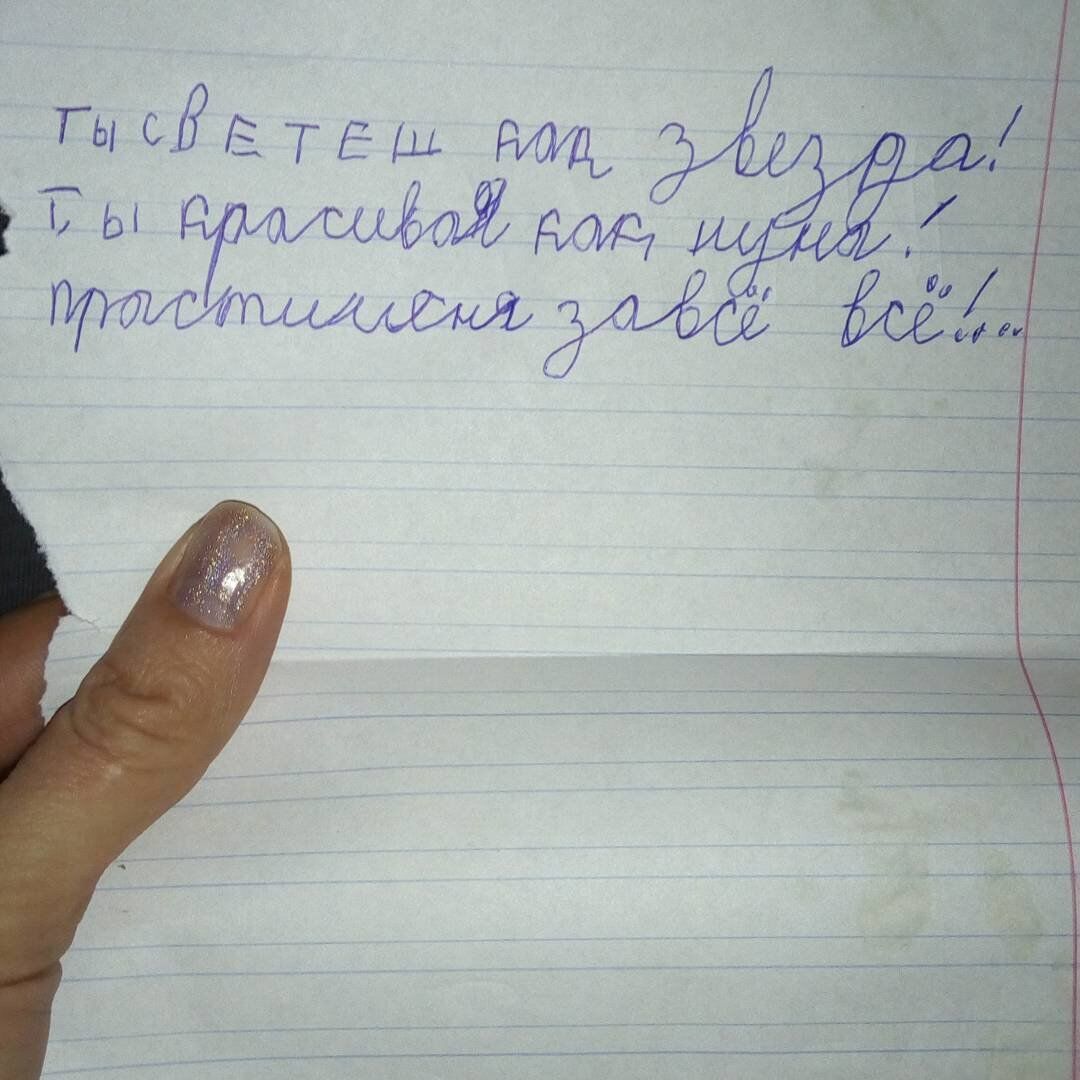 ты светеш как звезда!
Ты красивая как луна!
прастименя завсё всё!...